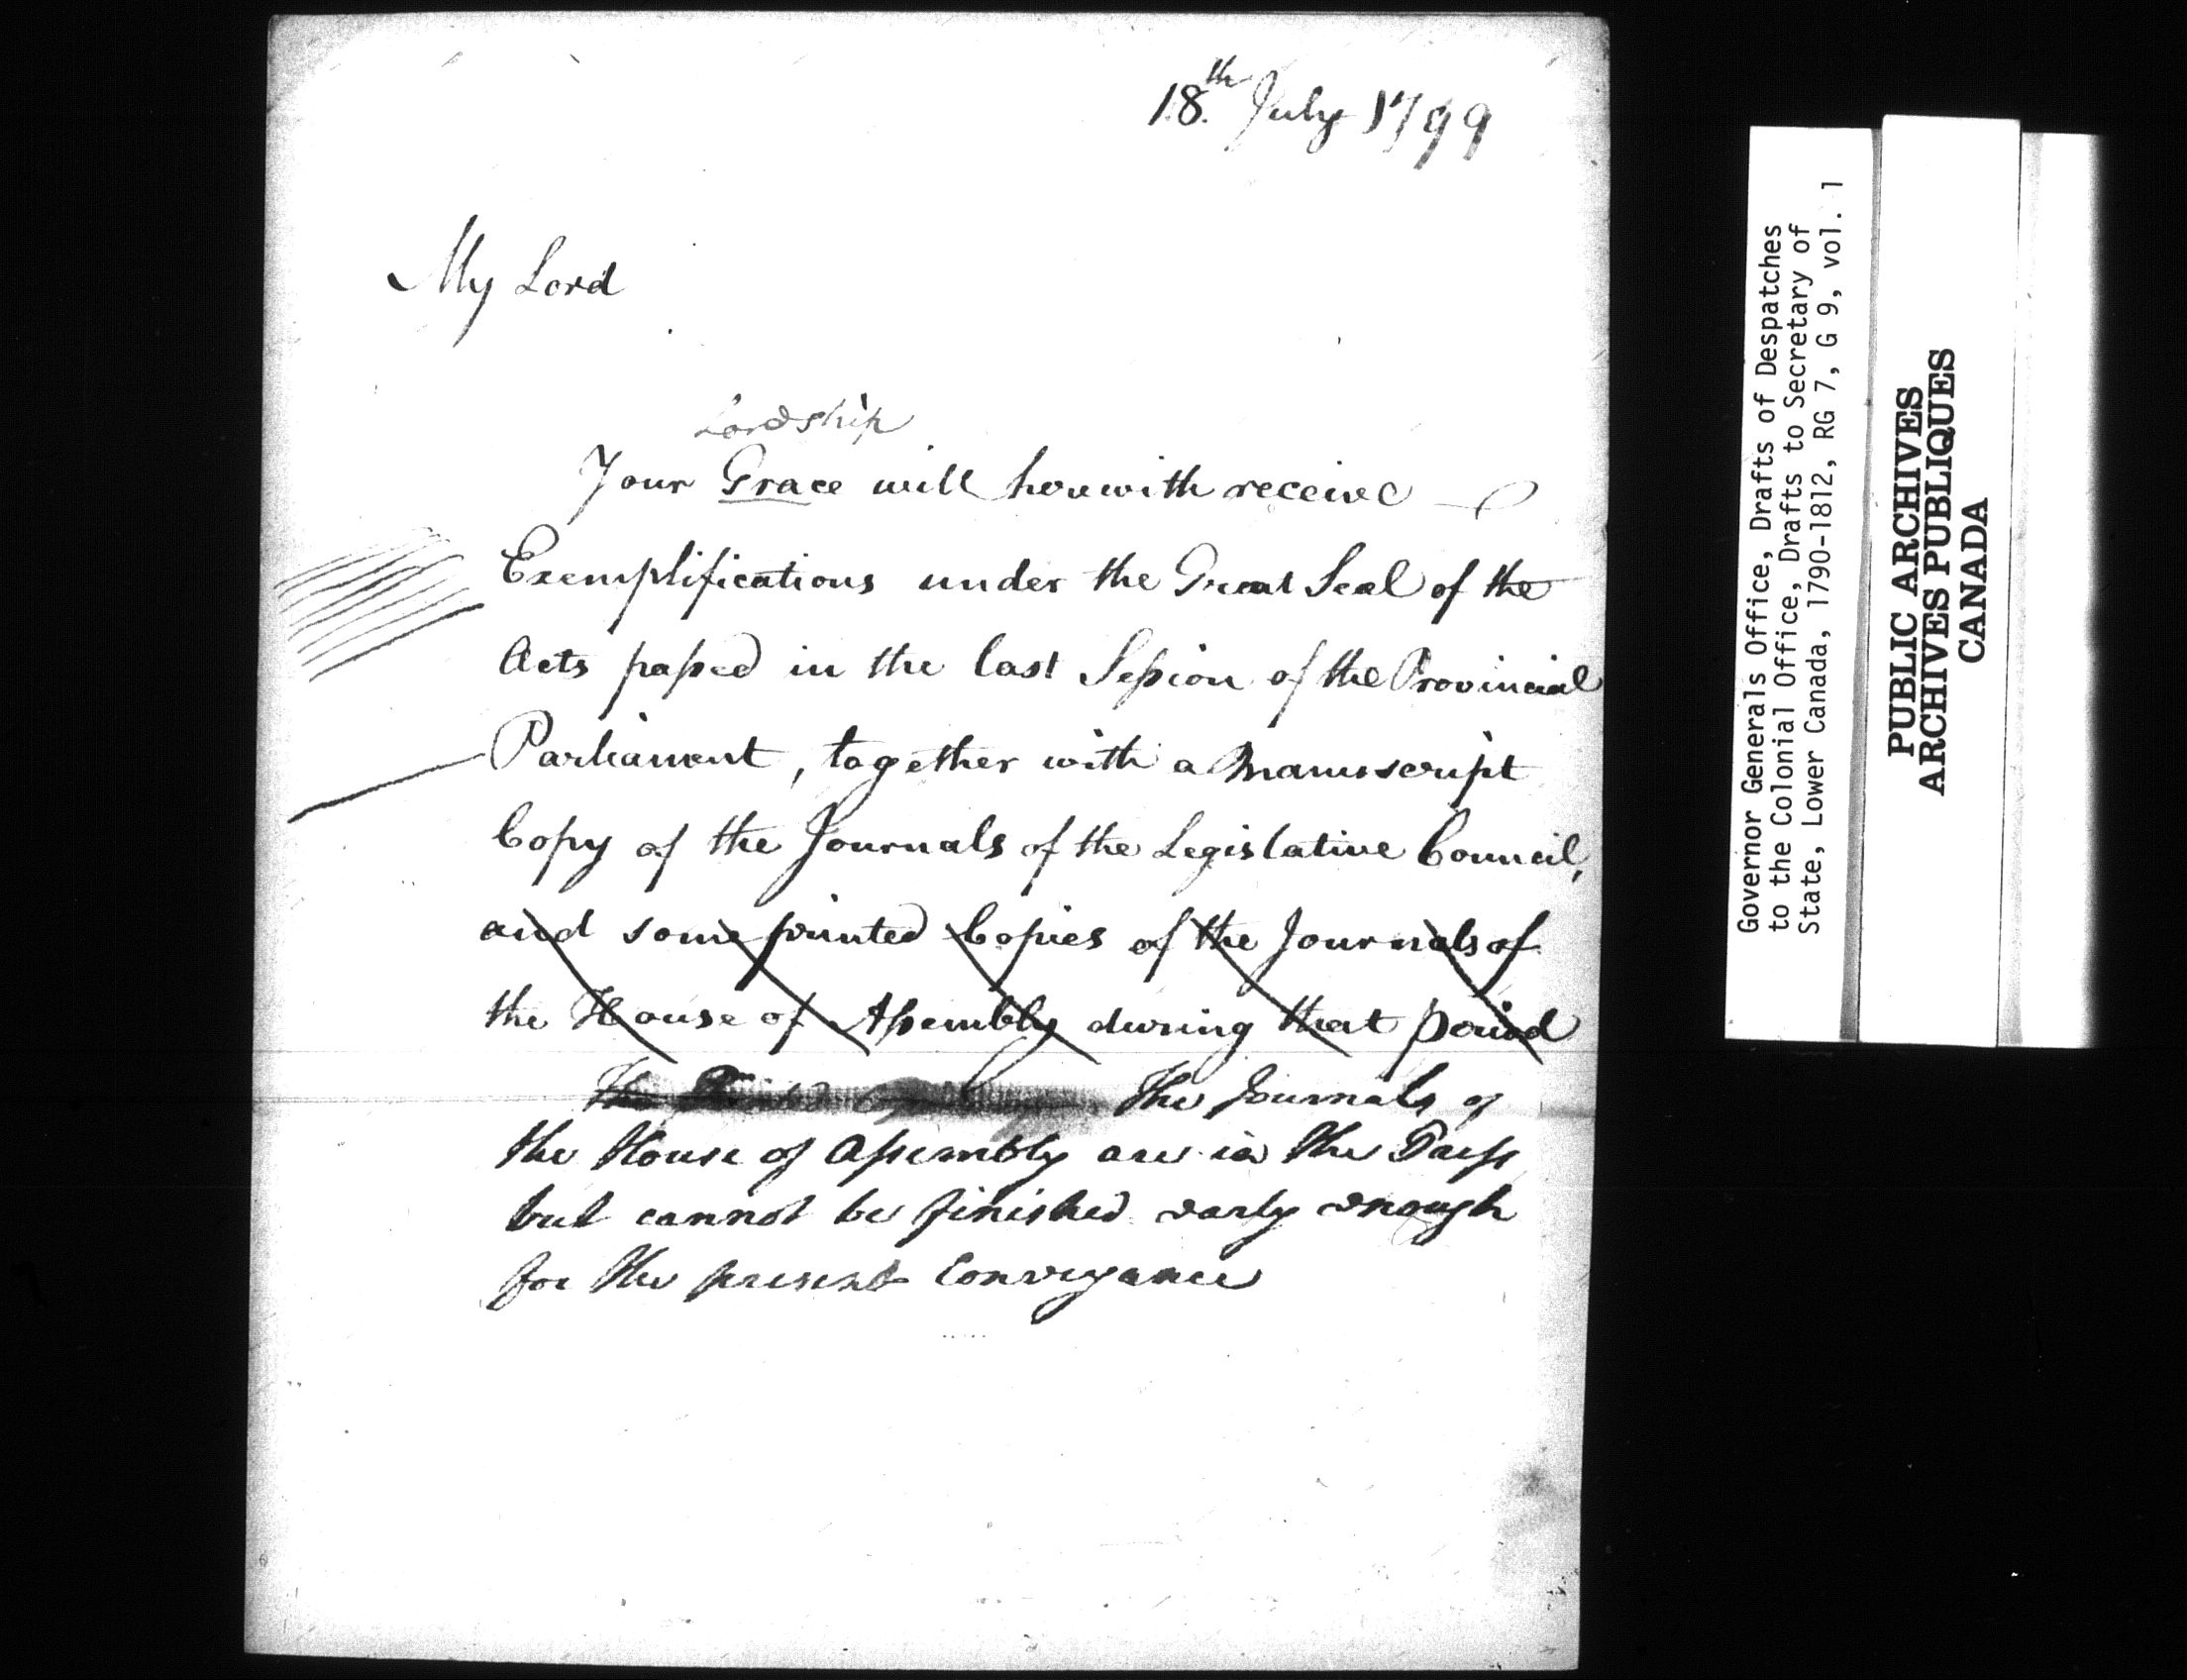 18.th July 1799
My Lord
Lordship
Your Grace will herewith receive
Exemplifications under the Great Seal of the
Acts passed in the last Session of the Provincial
Parliament, together with a Manuscript
Copy of the Journals of the Legislative Council,
and some printed Copies of the Journals of
the House of Assembly during that period
The Journals of
the House of Assembly are in the Press
but cannot be finished early enough
for the present Conveyance
Governor Generals Office, Drafts of Despatches
to the Colonial Office, Drafts to Secretary of
State, Lower Canada, 1790-1812, RG 7, G 9, vol. 1
PUBLIC ARCHIVES
ARCHIVES PUBLIQUES
CANADA